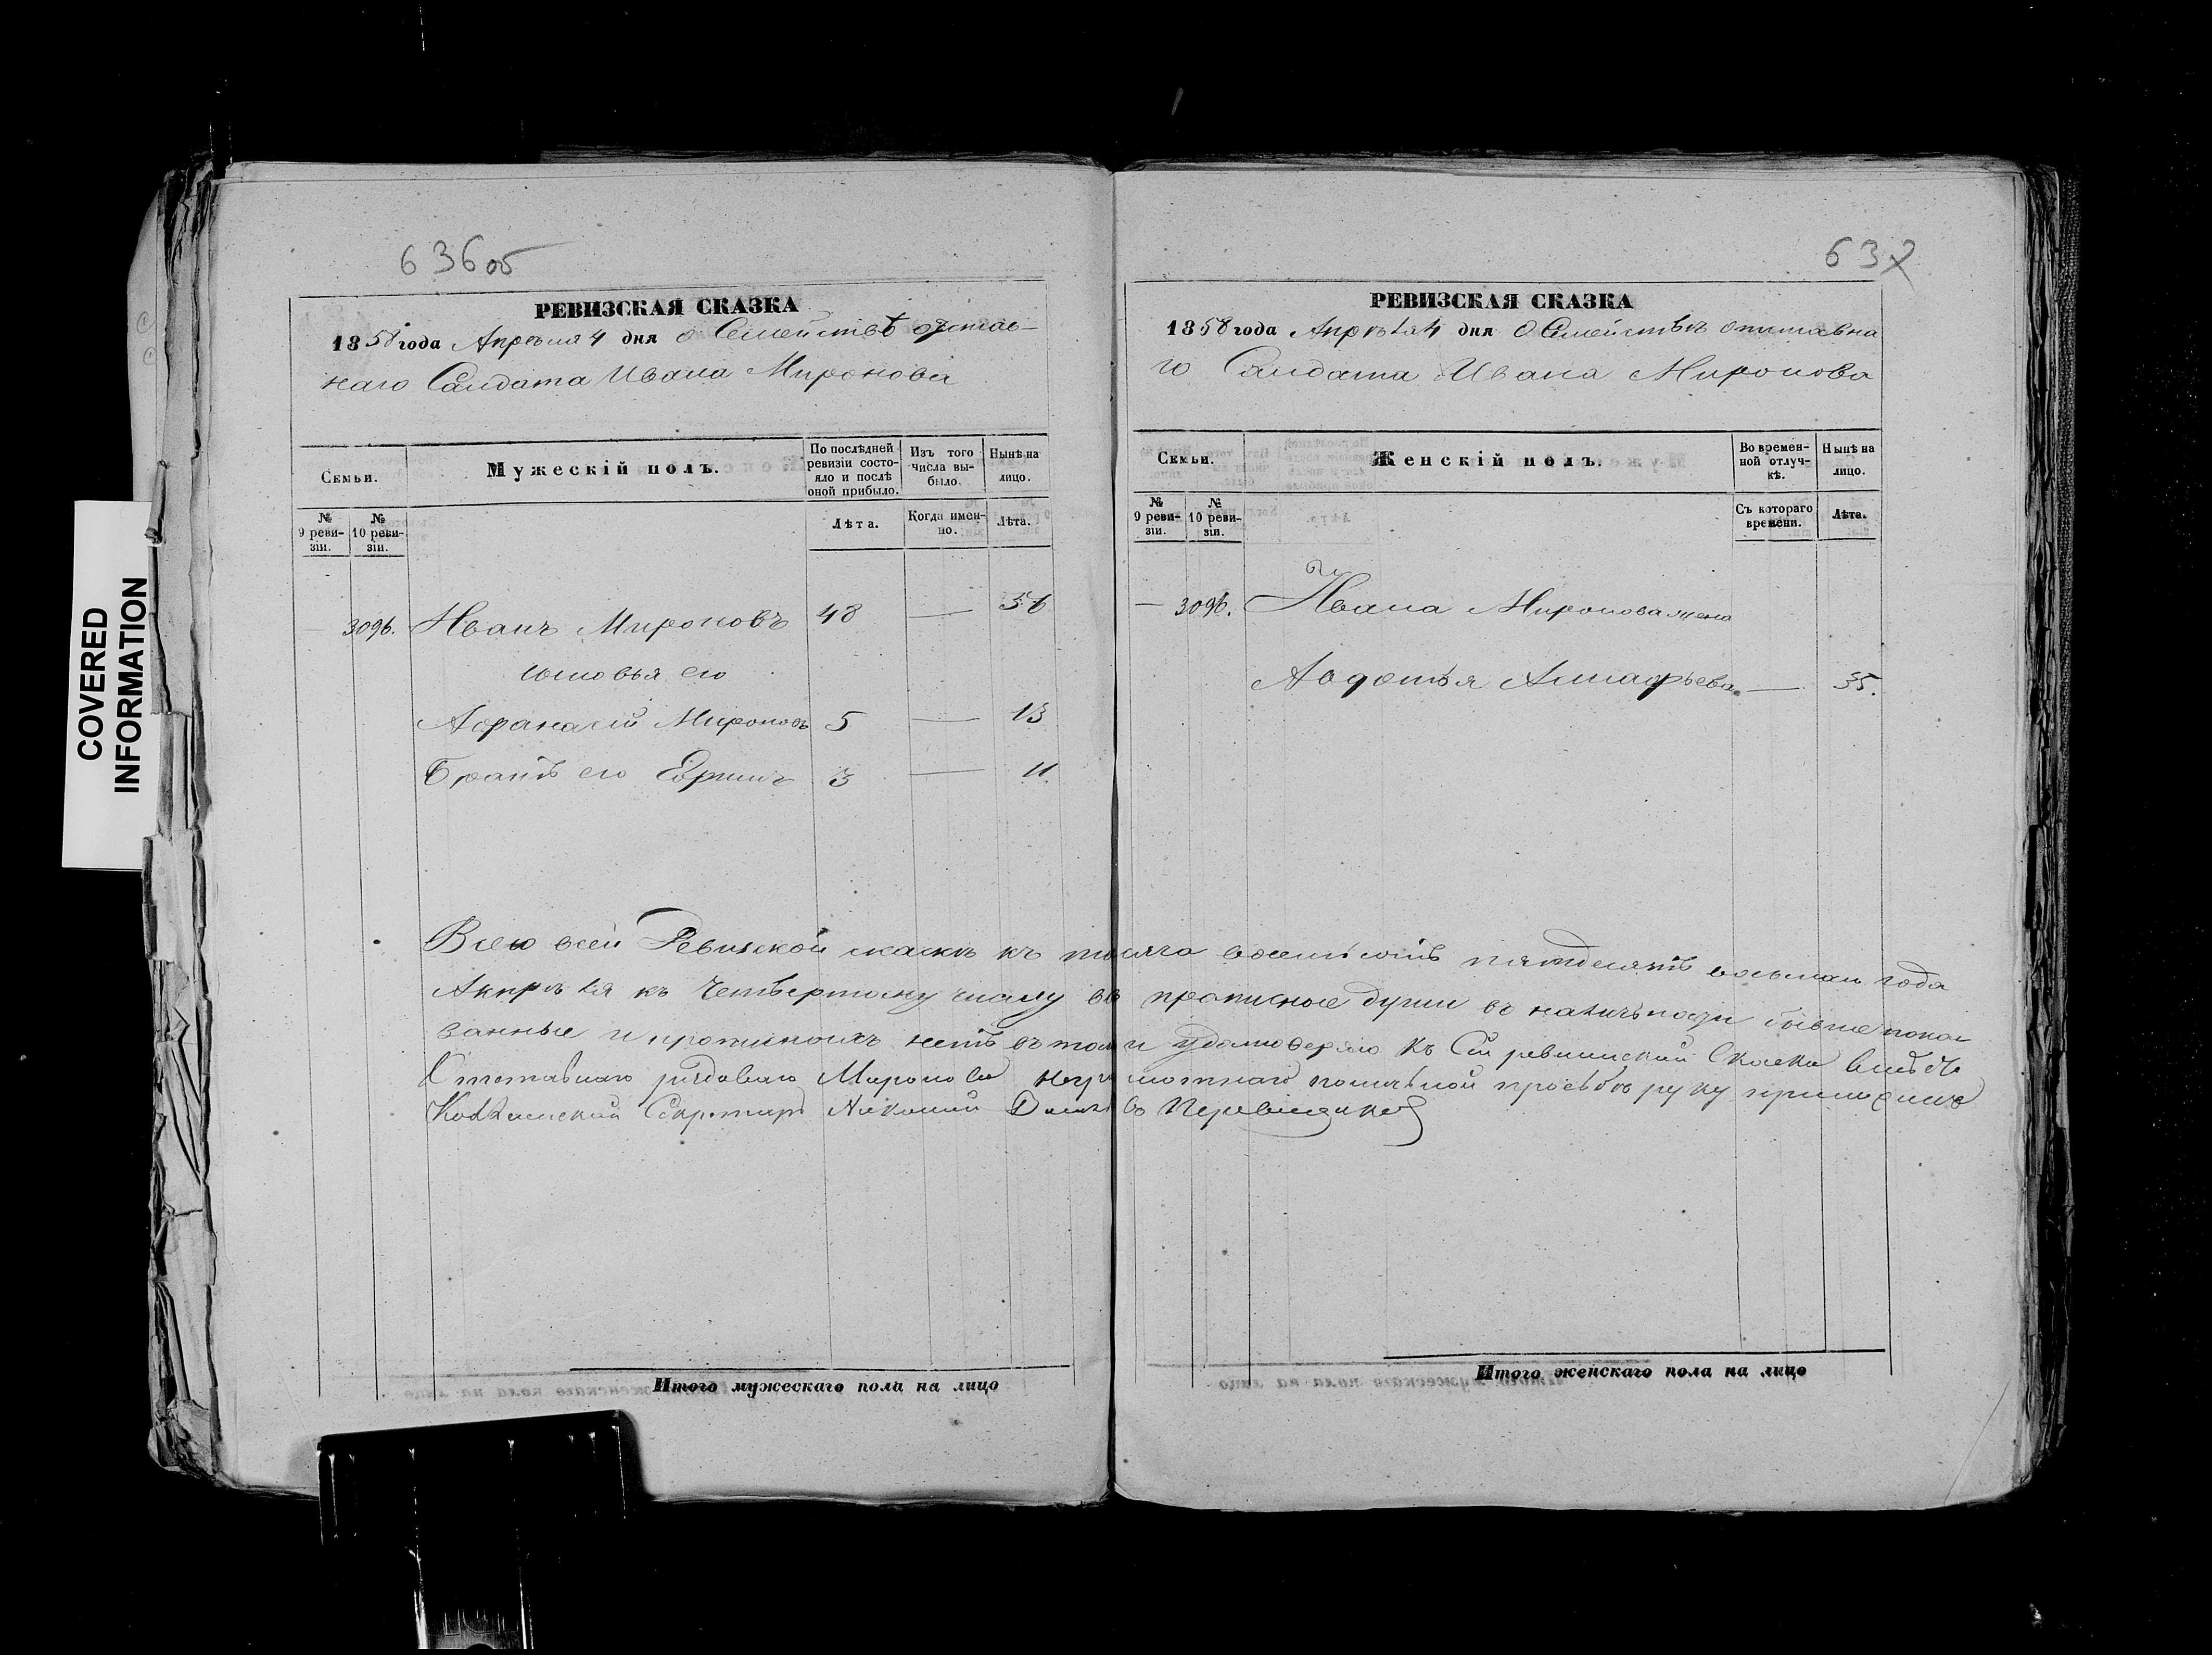 636об
РЕВИЗСКАЯ СКАЗКА
1858 года Апреля 4 дня о Семействѣ отстав-
наго Салдата Ивана Миронова
Семьи.
Мужескій полъ.
По послѣдней ревизіи состояло и послѣ оной прибыло.
Изъ того числа выбыло.
Нынѣ на лицо.
№ 9 ревизіи.
№ 10 ревизіи.
Лѣта.
Когда именно.
Лѣта.
309б. Иванъ Мироновъ 48 — 56
сыновья его
Афанасій Мироновъ 5 — 13
Братъ его Ефимъ 3 — 11.
Итого мужескаго пола на лицо
637
РЕВИЗСКАЯ СКАЗКА
1858 года Апрѣля 4 дня О Семействѣ отставна
го Салдата Ивана Миронова
Семьи.
Женскій полъ.
Во временной отлучкѣ.
Нынѣ на лицо.
№ 9 ревизіи.
№ 10 ревизіи.
Съ котораго времени.
Лѣта.
— 309б. Ивана Миронова жена
Авдотья — 35.
Всею всей Ревизкой скаскѣ къ тысяча восемьсотъ пятдесятъ восьмои года
Апрѣля къ Четвертому числу всѣ прописное души въ наличьности бывше показ
занные и прописныхъ нетъ въ томъ и удостоверяю Къ Сей ревизиской Скаске вместе
Отставнаго рядоваго Миронова неграмотнаго по личьной просьбѣ руку приложилъ
Секретарь
Итого женскаго пола на лицо
COVERED
INFORMATION